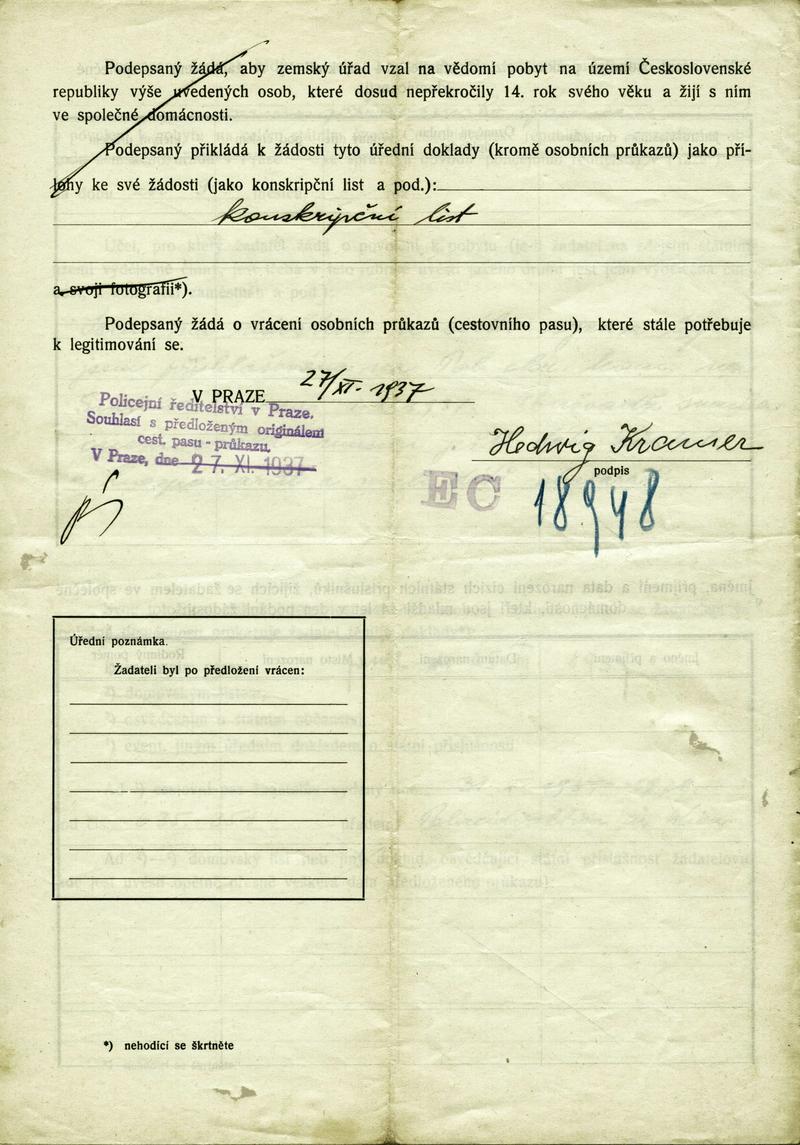 Podepsaný žádá, aby zemský úřad vzal na vědomí pobyt na území Československé
republiky výše uvedených osob, které dosud nepřekročily 14. rok svého věku a žijí s ním
ve společné domácnosti.
Podepsaný přikládá k žádosti tyto úřední doklady (kromě osobních průkazů) jako pří-
lohy ke své žádosti (jako konskripční list a pod.):
konskripční list
a svoji fotografii*).
Podepsaný žádá o vrácení osobních průkazů (cestovního pasu), které stále potřebuje
k legitimování se.
V PRAZE 27/XI. 1937
Policejní ředitelství v Praze.
Souhlasí s předloženým originálem
cest. pasu - průkazu.
V Praze, dne 27. XI. 1937
Hedwig Kramer
podpis
EC
18948
Úřední poznámka.
Žadateli byl po předložení vrácen:
*) nehodící se škrtněte